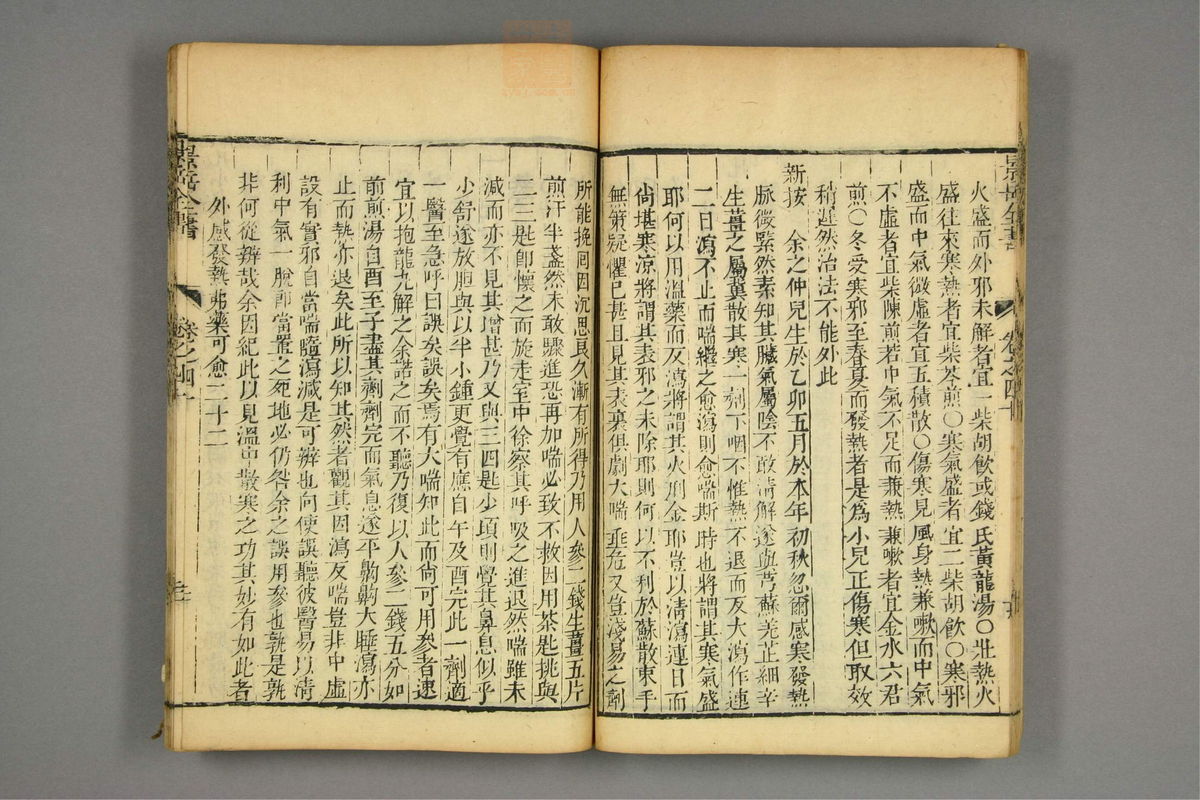 景岳全書
卷之四十
火盛而外邪未解者宜一柴胡飲或錢氏黃龍湯〇壯熱火
盛往來寒熱者宜柴芩煎〇寒氣盛者宜二柴胡飲〇寒邪
盛而中氣微虛者宜五積散〇傷寒見風身熱兼嗽而中氣
不虛者宜柴陳煎若中氣不足而兼熱兼嗽者宜金水六君
煎〇冬受寒邪至春夏而發熱者是爲小兒正傷寒但取效
稍遲然治法不能外此
新按 余之仲兒生於乙卯五月於本年初秋忽爾感寒發熱
脉微緊然素知其臟氣屬陰不敢清解遂與芎蘇羌芷細辛
生薑之屬冀散其寒一劑下咽不惟熱不退而反大瀉作連
二日瀉不止而喘繼之愈瀉則愈喘斯時也將謂其寒氣盛
耶何以用溫藥而反瀉將謂其火刑金耶豈以清瀉連日而
尚堪寒涼將謂其表邪之未除耶則何以不利於蘇散束手
無策疑懼已甚且見其表裏俱劇大喘垂危又豈淺易之劑
所能挽囘因沉思良久漸有所得乃用人參二錢生薑五片
煎汁半盞然未敢驟進恐再加喘必致不救因用茶匙挑與
二三匙卽懷之而旋走室中徐察其呼吸之進退然喘雖未
減而亦不見其增甚乃又與三四匙少頃則覺其鼻息似乎
少舒遂放胆與以半小鍾更覺有應自午及酉完此一劑適
一醫至急呼曰誤矣誤矣焉有大喘如此而尚可用參者速
宜以抱龍丸解之余諾之而不聽乃復以人參二錢五分如
前煎湯自酉至子盡其劑劑完而氣息遂平齁齁大睡瀉亦
止而熱亦退矣此所以知其然者觀其因瀉反喘豈非中虛
設有實邪自當喘隨瀉減是可辨也向使誤聽彼醫易以清
利中氣一脫卽當置之死地必仍咎余之誤用參也孰是孰
非何從辨哉余因紀此以見溫中散寒之功其妙有如此者
外感發熱弗藥可愈二十二
景岳全書
卷之四十